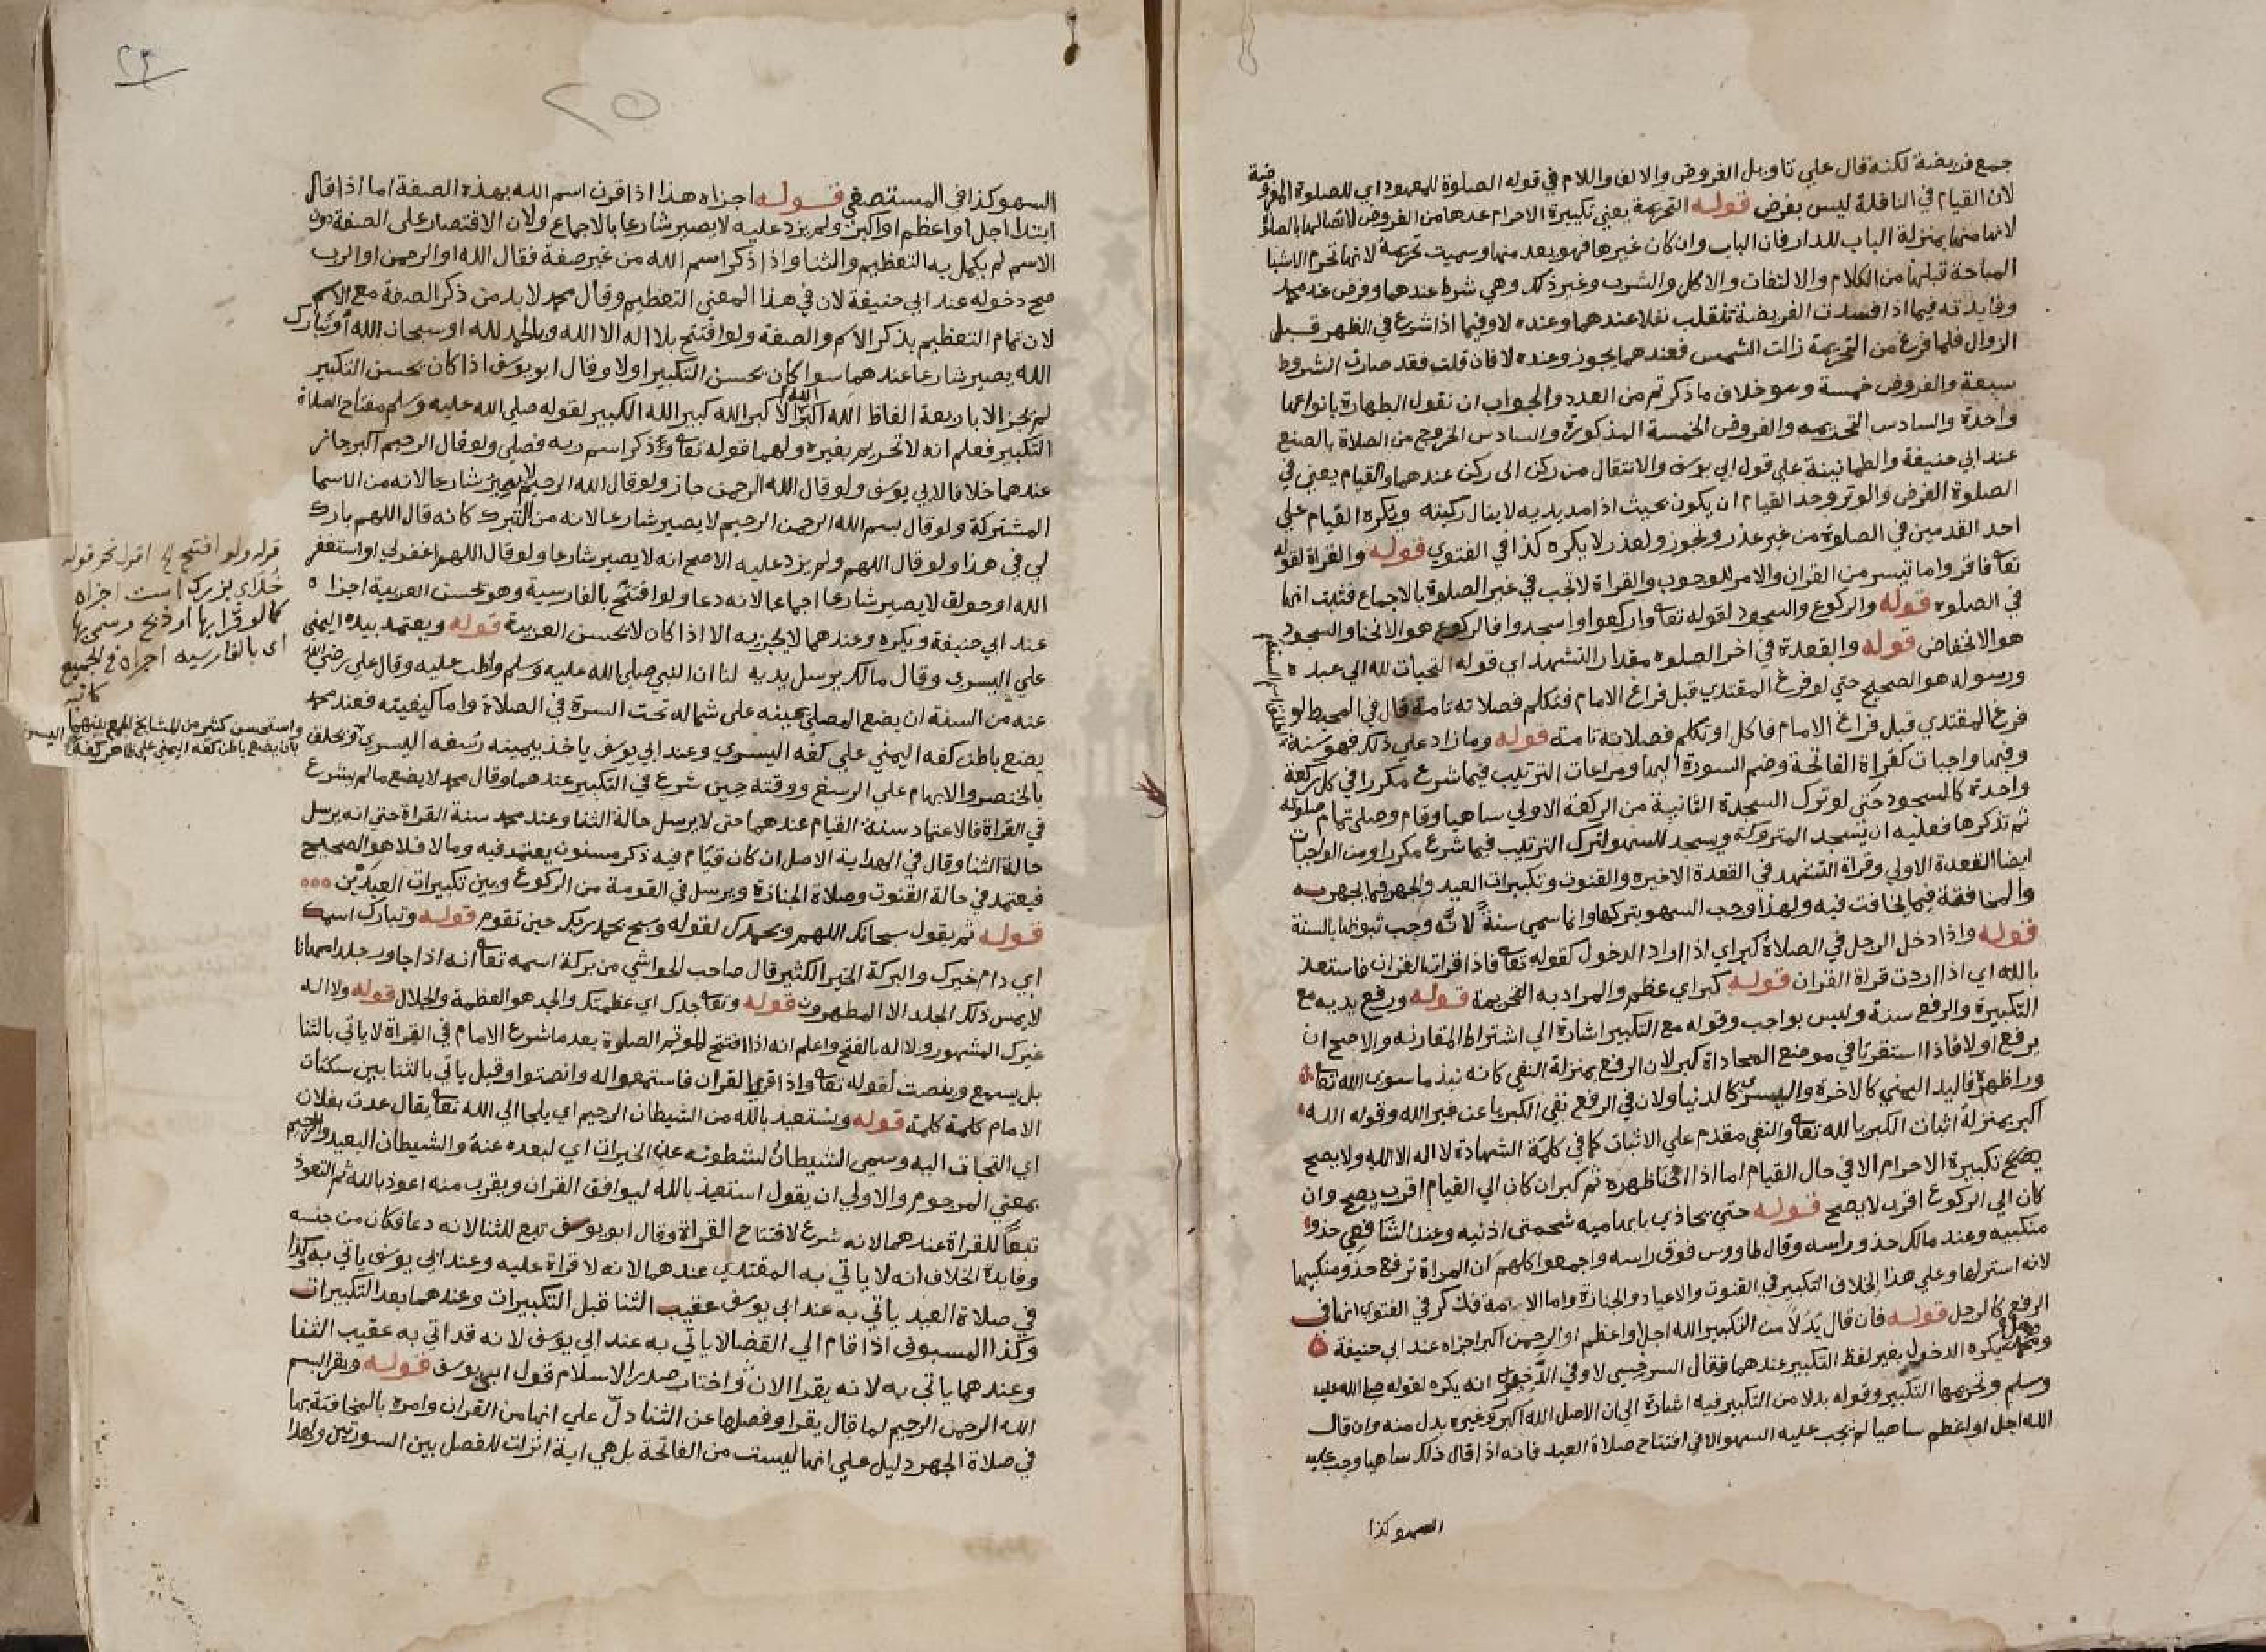 جمع فريضة لكنه قال علي تاويل الفروض والالف واللام في قوله الصلوة للمعهود اي للصلوة المفروضة
لان القيام في النافلة ليس بفرض قوله التحريمة يعني تكبيرة الاحرام عدها من الفروض لاتصالها بالصلوة
لانها منها بمنزلة الباب للدار فان الباب وان كان غيرها فهو يعد منها وسميت تحريمة لانها تحرم الاشيا
المباحة قبلها من الكلام والالتفات والاكل والشرب وغير ذلك وهي شرط عندهما وفرض عند محمد
وفايدته فيما اذا فسدت الفريضة تنقلب نفلا عندهما وعنده لا وفيما اذا شرع في الظهر قبل
الزوال فلما فرغ من التحريمة زالت الشمس فعندهما يجوز وعنده لا فان قلت فقد صارت الشروط
سبعة والفروض خمسة وهو خلاف ما ذكرتم من العدد والجواب ان نقول الطهارة بانواعها
واحدة والسادس التحريمه والفروض الخمسة المذكورة والسادس الخروج من الصلاة بالصنع
عند ابي حنيفة والطمانينة علي قول ابي يوسف والانتقال من ركن الى ركن عندهما والقيام يعني في
الصلوة الفرض والوتر وحد القيام ان يكون بحيث اذا مد يديه لا ينال ركبته ويكره القيام علي
احد القدمين في الصلوة من غير عذر وتجوز ولعذر لا يكره كذا في الفتوي قوله والقراة لقوله
تعا فاقروا ما تيسر من القران والامر للوجوب والقراة لا تجب في غير الصلوة بالاجماع فثبت انها
في الصلوه قوله والركوع والسجود لقوله تعا واركعوا واسجدوا فالركوع هو الانحنا والسجود
هو الانخفاض قوله والقعدة في اخر الصلوه مقدار التشهد اي قوله التحيات لله الي عبده
ورسوله هو الصحيح حتي لو فرغ المقتدي قبل فراغ الامام فتكلم فصلاته تامة قال في المحيط لو
فرغ المقتدي قبل فراغ الامام فاكل او تكلم فصلاته تامت قوله وما زاد علي ذلك فهو سنة
وفيها واجبات كقراة الفاتحة وضم السورة اليها ومراعات الترتيب فيما شرع مكررا في كل ركعة
واحدة كالسجود حتي لو ترك السجدة الثانية من الركعة الاولي ساهيا وقام وصلى تمام صلوته
ثم تذكرها فعليه ان يسجد المتروكة ويسجد للسهو لترك الترتيب فيما شرع مكررا ومن الواجبات
ايضا القعدة الاولي وقراة التشهد في القعدة الاخيره والقنوت وتكبيرات العيد والجهر فيما يجهر به
والمخافقة فيما يخافت فيه ولهذا وجب السهو بتركها وانما سمي سنة لانه وجب ثبوتها بالسنة
قوله واذا دخل الرجل في الصلاة كبر اي اذا اراد الدخول كقوله تعا فاذا قرات القران فاستعذ
بالله اي اذا اردت قراة القران قوله كبر اي عظم والمراد به التحريمة قوله ورفع يديه مع
التكبيرة والرفع سنة وليس بواجب وقوله مع التكبير اشارة الي اشتراط المقارنه والاصح ان
يرفع اولا فاذا استقرتا في موضع المحاداة كبر لان الرفع بمنزلة النفي كانه نبذ ما سوي الله تعا
ورا ظهره فاليد اليمني كالاخرة واليسرى كالدنيا ولان في الرفع نفي الكبريا عن غير الله وقوله الله
اكبر بمنزلة اثبات الكبريا لله تعا والنفي مقدم علي الاثبات كما في كلمة الشهادة لا اله الا الله ولا يصح
تكبيرة الاحرام الا في حال القيام اما اذا احنا ظهره ثم كبر ان كان الي القيام اقرب يصح وان
كان الي الركوع اقرب لا يصح قوله حتي يحاذي بابهاميه شحمتي اذنيه وعند الشافعي حذو
منكبيه وعند مالك حذو راسه وقال طاووس فوق راسه واجمعوا كلهم ان المراة ترفع حذو منكبيها
لانه استر لها وعلي هذا الخلاف التكبير في القنوت والاعياد والجنازة واما الامة فذكر في الفتوي انها في
الرفع كالرجل قوله فان قال بدلا من التكبير الله اجل او اعظم او الرحمن اكبر اجزاه عند ابي حنيفة
ومحمد وهل يكره الدخول بغير لفظ التكبير عندهما فقال السرخسي لا وفي الذخيرة انه يكره لقوله صلى الله عليه
وسلم وتحريمها التكبير وقوله بدلا من التكبير فيه اشارة الي ان الاصل الله اكبر وغيره بدل منه وان قال
الله اجل او اعظم ساهيا لم يجب عليه السهو الا في افتتاح صلاة العيد فانه اذا قال ذلك ساهيا وجب عليه
السهو كذا
السهو كذا في المستصفي قوله اجزاه هذا اذا قرن اسم الله بهذه الصفة اما اذا قال
ابتدا اجل او اعظم او اكبر ولم يزد عليه لا يصير شارعا بالاجماع ولان الاقتصار على الصفة دون
الاسم لم يكمل به التعظيم والثنا واذا ذكر اسم الله من غير صفة فقال الله او الرحمن او الرب
صح دخوله عند ابي حنيفة لان في هذا المعني التعظيم وقال محمد لا بد من ذكر الصفة مع الاسم
لان تمام التعظيم بذكر الاسم والصفة ولو افتتح بلا اله الا الله وبالحمد لله او سبحان الله او تبارك
الله يصير شارعا عندهما سوا كان يحسن التكبير اولا وقال ابو يوسف اذا كان يحسن التكبير
لم يجز الا باربعة الفاظ الله اكبر الله الاكبر الله كبير الله الكبير لقوله صلي الله عليه وسلم مفتاح الصلاة
التكبير فعلم انه لا تحريم بغيره ولهما قوله تعا وذكر اسم ربه فصلي ولو قال الرحيم اكبر جاز
عندهما خلافا لابي يوسف ولو قال الله الرحمن جاز ولو قال الله الرحيم لا يصير شارعا لانه من الاسما
المشتركة ولو قال بسم الله الرحمن الرحيم لا يصير شارعا لانه من التبرك كانه قال اللهم بارك
لي في هذا ولو قال اللهم ولم يزد عليه الاصح انه لا يصير شارعا ولو قال اللهم اغفر لي او استغفر
الله او حولق لا يصير شارعا اجماعا لانه دعا ولو افتتح بالفارسية وهو يحسن العربية اجزاه
عند ابي حنيفة ويكره وعندهما لا يجزيه الا اذا كان لا يحسن العربية قوله ويعتمد بيده اليمني
علي اليسري وقال مالك يرسل يديه لنا ان النبي صلي الله عليه وسلم واظب عليه وقال علي رضي الله
عنه من السنة ان يضع المصلي يمينه على شماله تحت السرة في الصلاة واما كيفيته فعند محمد
يضع باطن كفه اليمني علي كفه اليسري وعند ابي يوسف ياخذ بيمينه رسغه اليسري ويحلق
بالخنصر والابهام علي الرسغ ووقته حين شرع في التكبير عندهما وقال محمد لا يضع ما لم يشرع
في القراة فالاعتماد سنة القيام عندهما حتى لا يرسل حالة الثنا وعند محمد سنة القراة حتي انه يرسل
حالة الثنا وقال في الهداية الاصل ان كان قيام فيه ذكر مسنون يعتمد فيه وما لا فلا هو الصحيح
فيعتمد في حالة القنوت وصلاة الجنازة ويرسل في القومة من الركوع وبين تكبيرات العيدين
قوله ثم يقول سبحانك اللهم وبحمدك لقوله وسبح بحمد ربك حين تقوم قوله وتبارك اسمك
اي دام خيرك والبركة الخير الكثير قال صاحب الحواشي من بركة اسمه تعا انه اذا جاور جلدا مهانا
لا يمس ذلك الجلد الا المطهرون قوله وتعا جدك اي عظمتك والجد هو العظمة والجلال قوله ولا اله
غيرك المشهور ولا اله بالفتح واعلم انه اذا افتتح الموتم الصلوة بعد ما شرع الامام في القراة لا ياتي بالثنا
بل يسمع وينصت لقوله تعا واذا قري القران فاستمعوا له وانصتوا وقيل ياتي بالثنا بين سكتات
الامام كلمة كلمة قوله ويستعيذ بالله من الشيطان الرجيم اي يلجا الي الله تعا يقال عدت بفلان
اي التجات اليه وسمي الشيطان لشطونه عن الخيرات اي لبعده عنه والشيطان البعيد والرجيم
بمعني المرجوم والاولي ان يقول استعيذ بالله ليوافق القران ويقرب منه اعوذ بالله ثم التعوذ
تبعا للقراة عندهما لانه شرع لافتتاح القراة وقال ابو يوسف تبع للثنا لانه دعا فكان من جنسه
وفايدة الخلاف انه لا ياتي به المقتدي عندهما لانه لا قراة عليه وعند ابي يوسف ياتي به وكذا
في صلاة العيد ياتي به عند ابي يوسف عقيب الثنا قبل التكبيرات وعندهما بعد التكبيرات
وكذا المسبوق اذا قام الي القضا لا ياتي به عند ابي يوسف لانه قد اتي به عقيب الثنا
وعندهما ياتي به لانه يقرا الان واختار صدر الاسلام قول ابي يوسف قوله ويقرا بسم
الله الرحمن الرحيم لما قال يقرا وفصلها عن الثنا دل علي انها من القران وامره بالمخافتة بها
في صلاة الجهر دليل علي انها ليست من الفاتحة بل هي اية انزلت للفصل بين السورتين ولهذا
قوله ولو افتتح الخ اقول نحو قوله
خداي بزرك است اجزاه
كما لو قرا بها او ذبح وسمي بها
اي بالفارسيه اجزاه في الجميع
واستحسن كثير من المشايخ الجمع بينهما
بان يضع باطن كفه اليمني على ظاهر كفه اليسرى
٢٥
٢٤